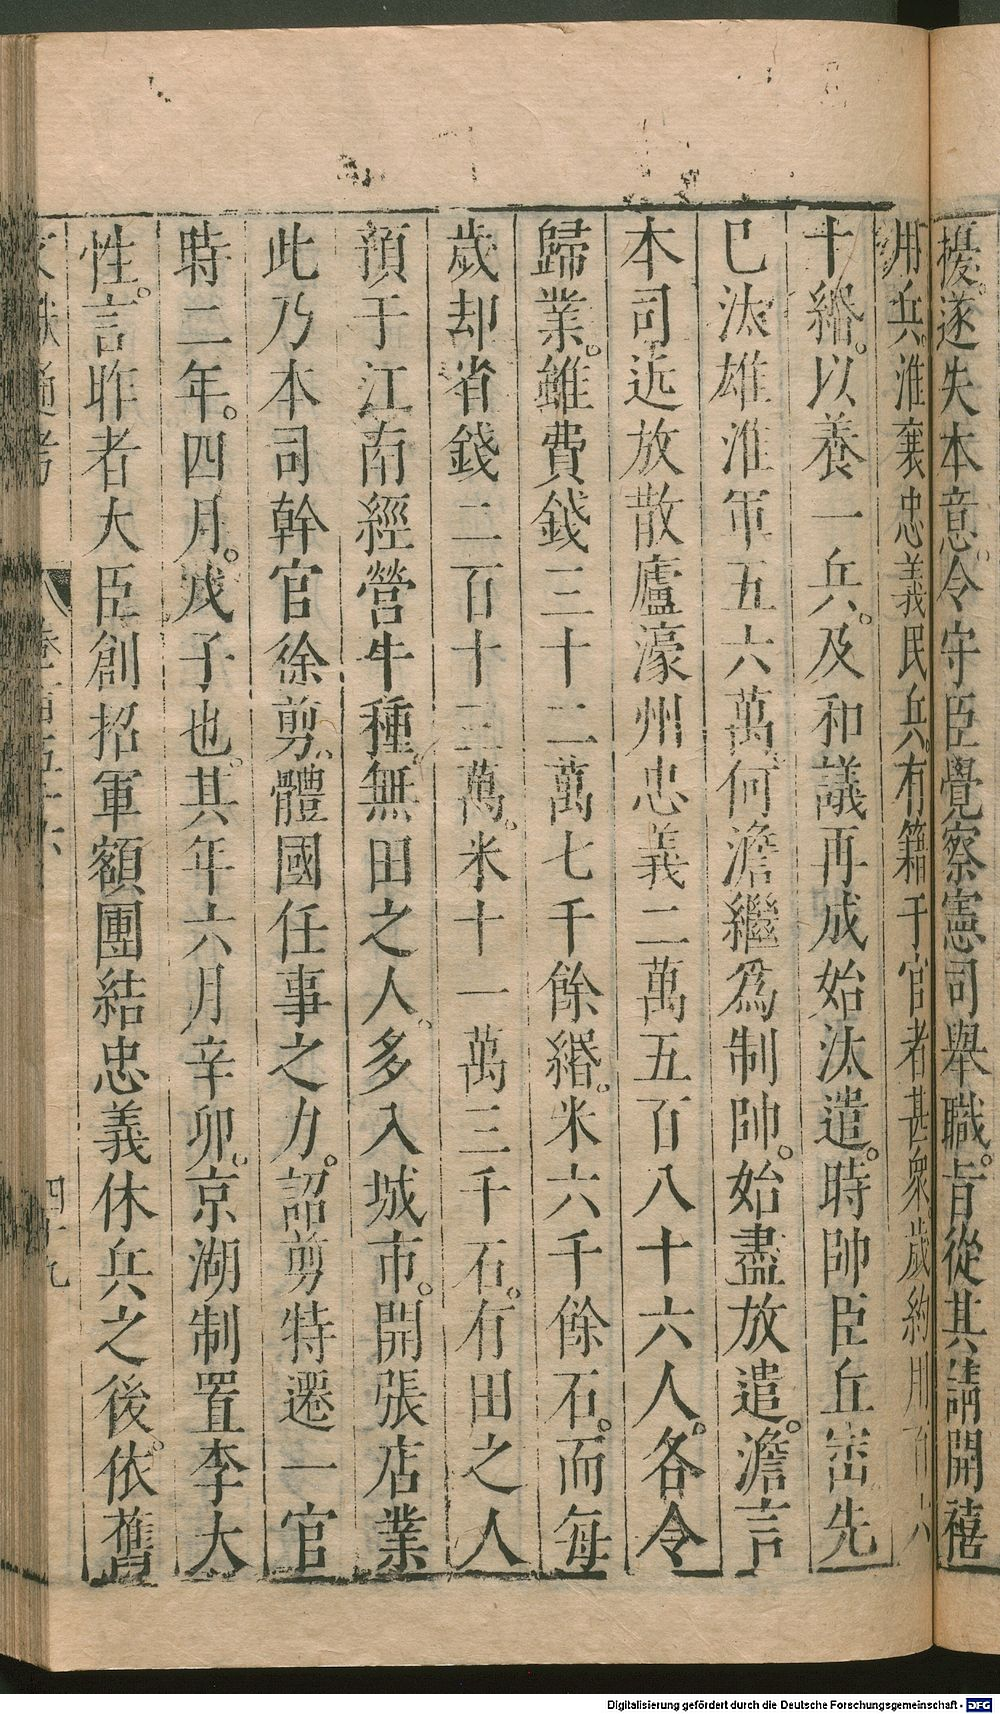 擾。遂失本意。令守臣覺察憲司舉職。旨從其請開禧
用兵。淮襄忠義民兵。有籍于官者甚衆歲約用百六
十緡。以養一兵。及和議再成始汰遣。時帥臣丘崈先
已汰雄淮軍五六萬。何澹繼爲制帥。始盡放遣。澹言
本司近放散廬濠州忠義二萬五百八十六人。各令
歸業。雖費錢三十二萬七千餘緡。米六千餘石。而每
歲却省錢二百十三萬。米十一萬三千石。有田之人
預于江南經營牛種。無田之人。多入城市。開張店業
此乃本司幹官徐剪。體國任事之力。詔剪特遷一官
時二年。四月。戊子也。其年六月辛卯。京湖制置李大
性。言昨者大臣創招軍額團結忠義休兵之後。依舊
文獻通考 卷一百五十六 四十九
Digitalisierung gefördert durch die Deutsche Forschungsgemeinschaft - DFG